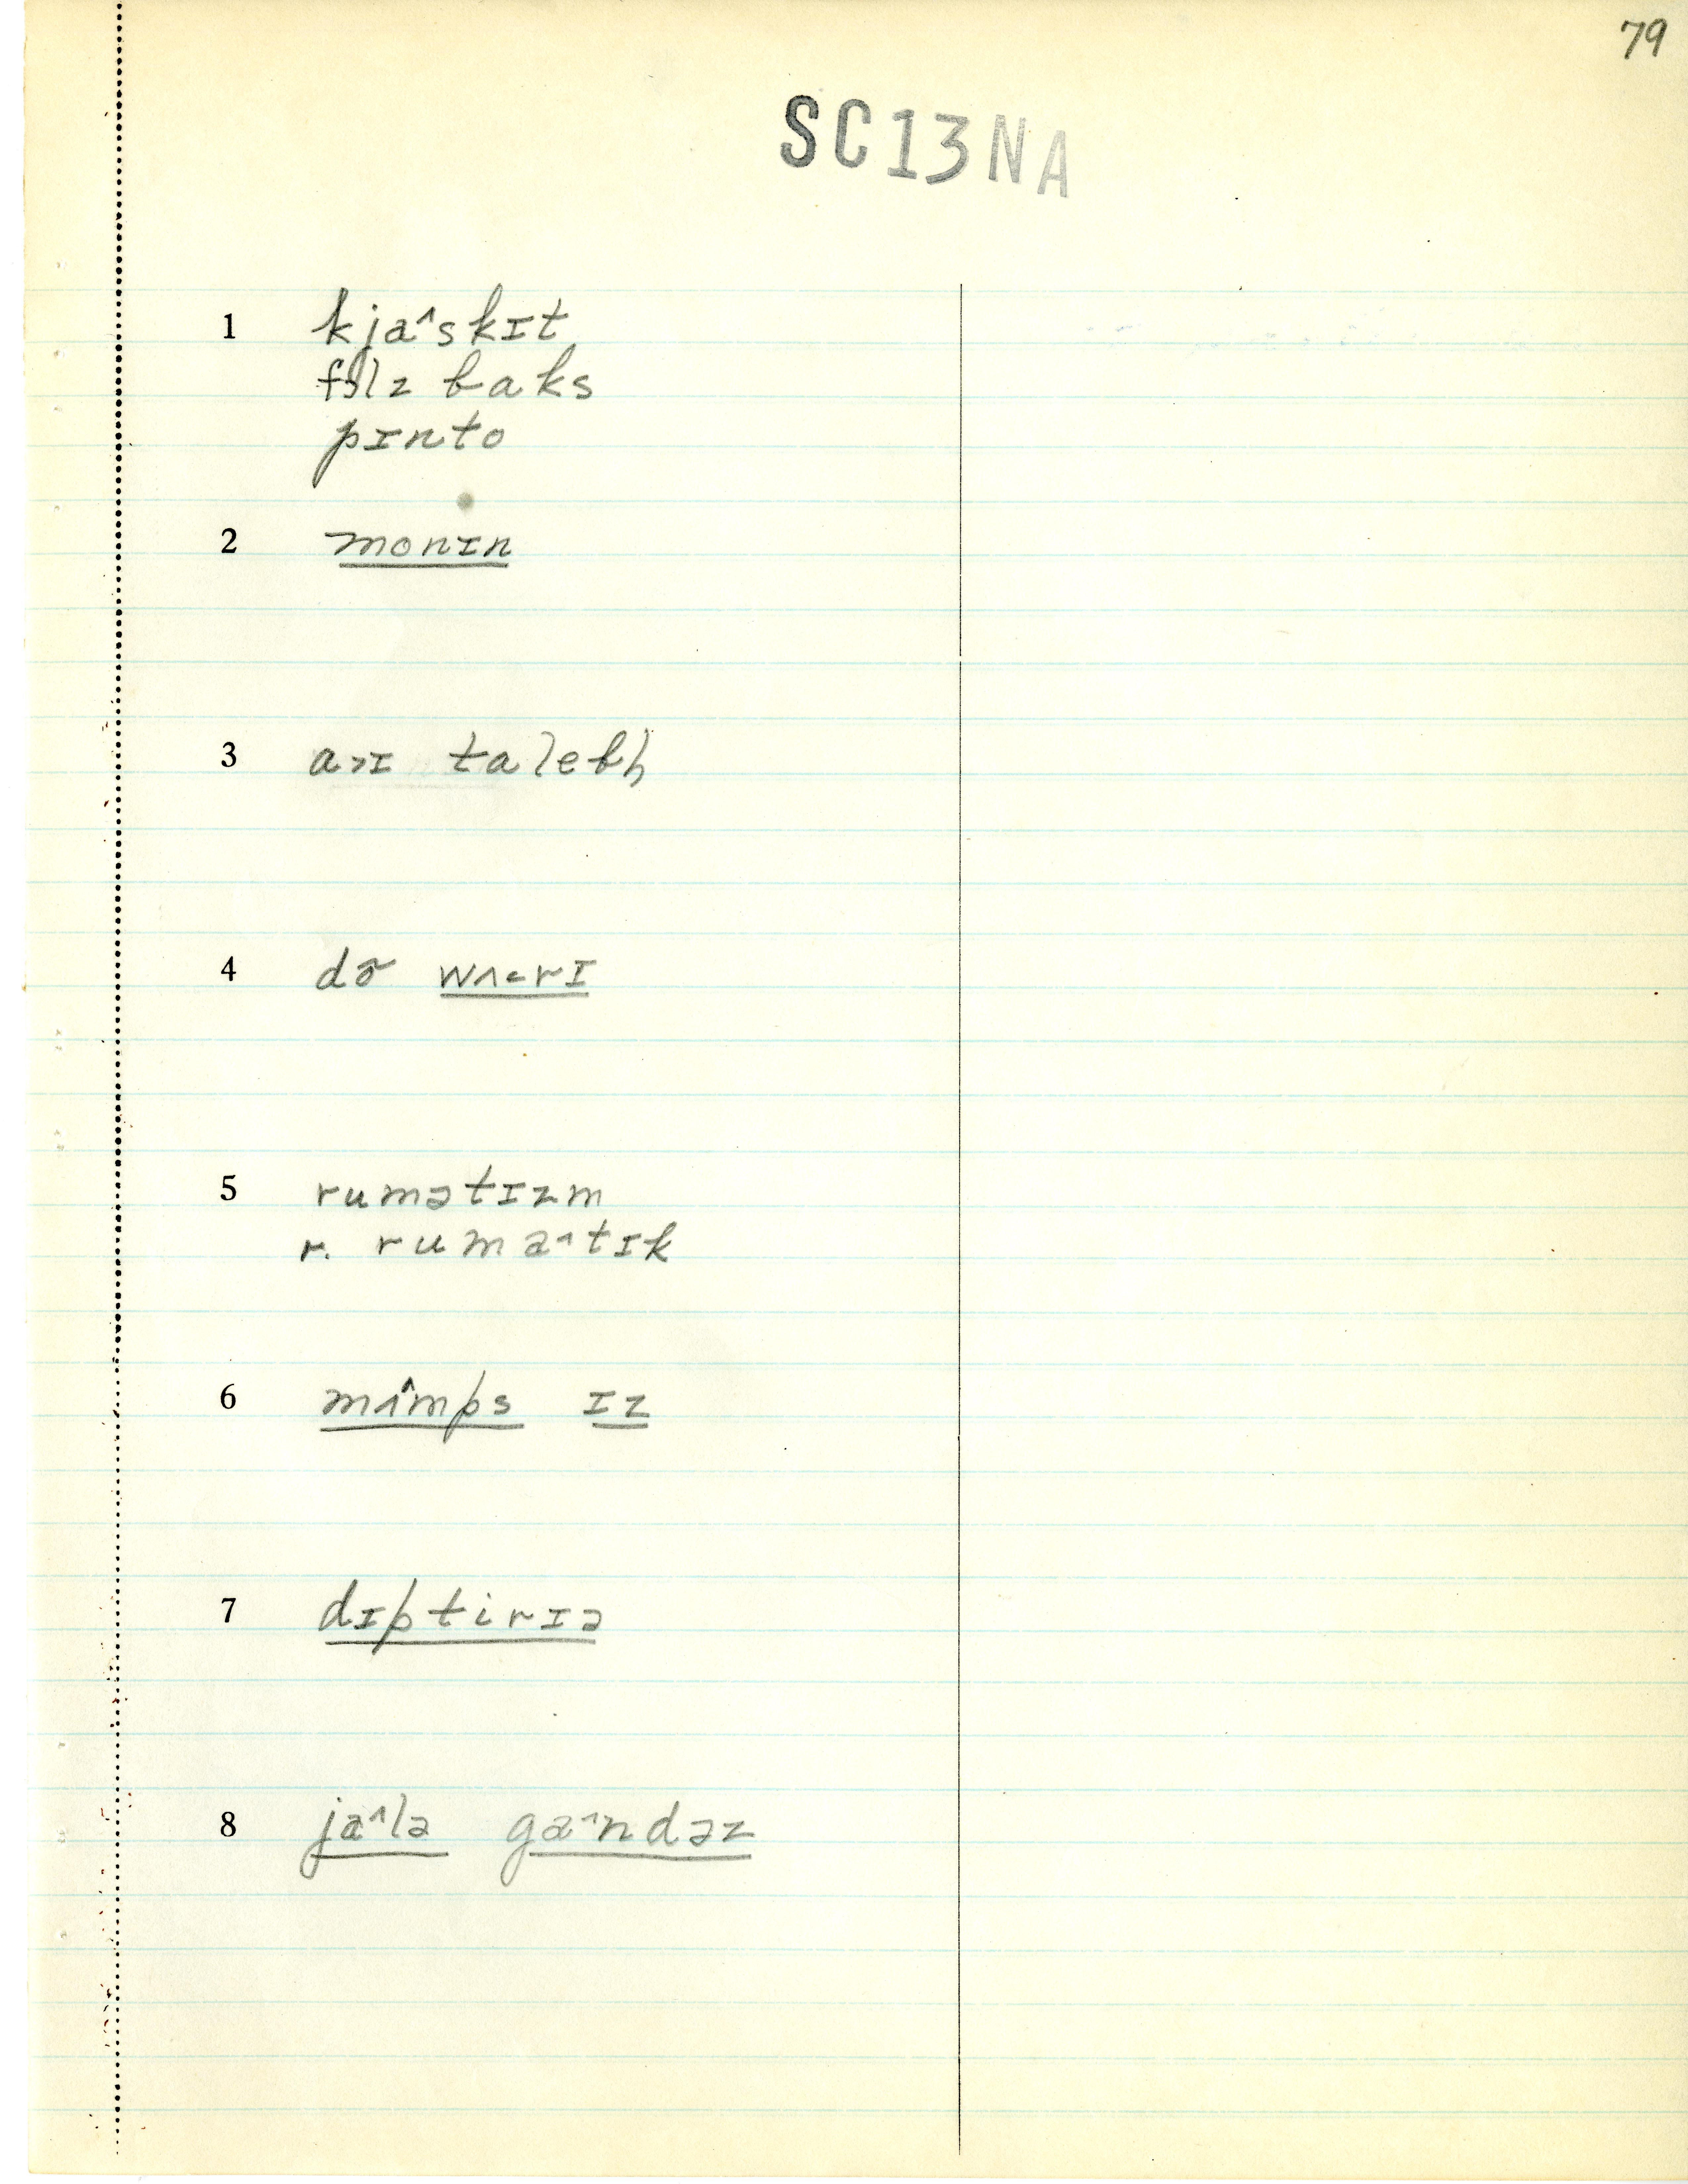 79
SC13NA
1 kja^skɪt
fɔlz baks
pɪnto
2 monɪn
3
4 dõ wʌ˂rɪ
5 rumətɪzm
r. ruma^tɪk
6 mʌ^mps ɪz
7 dɪptirɪə
8 ja^lə ga^ndəz